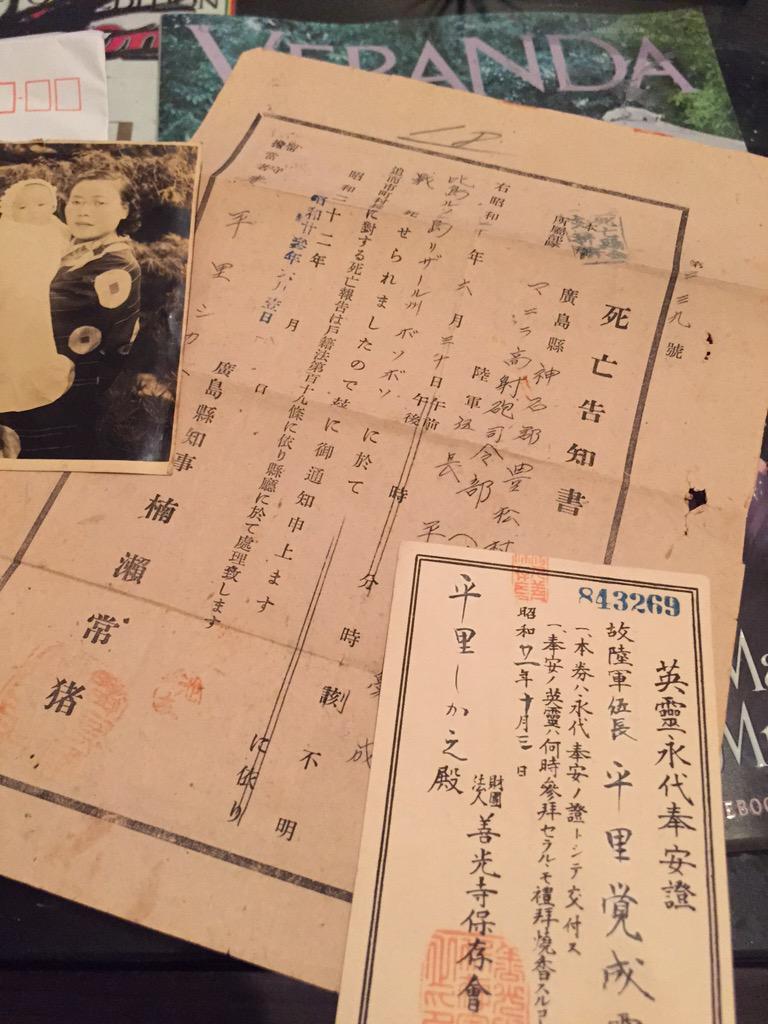 VERANDA
第二三九號
死亡告知書
本籍
所屬部隊
廣島縣神石郡豊松村
マニラ高射砲司令部
陸軍伍長
平
右昭和二十年六月三十日午前
午後
時
分
時刻不明
比島ルソン島リザール州ボソボソに於て
戰死せられましたので茲に御通知申上ます
追而市町村に對する死亡報告は戸籍法第百十九條に依り縣廳に於て處理致します
昭和二十二年
月
日
廣島縣知事 楠瀨常猪
留守
擔當者
平里シカ
に依り
843269
英靈永代奉安證
故陸軍伍長 平里覚成
一、本券ハ永代奉安ノ證トシテ交付ス
一、奉安ノ英靈ハ何時參拜セラルヽモ禮拜燒香スル
昭和廿一年十月三日
財團法人 善光寺保存會
平里しか之殿